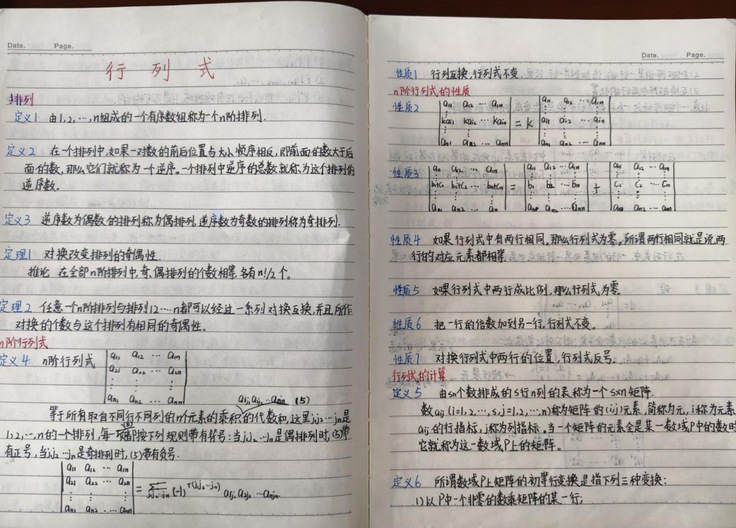 Date. Page.
行列式
排列
定义1 由1,2,…,n组成的一个有序数组称为一个n阶排列.
定义2 在一个排列中,如果一对数的前后位置与大小顺序相反,即前面的数大于后
面的数,那么它们就称为一个逆序。一个排列中逆序的总数就称为这个排列的
逆序数.
定义3 逆序数为偶数的排列称为偶排列,逆序数为奇数的排列称为奇排列.
定理1 对换改变排列的奇偶性.
推论 在全部n阶排列中,奇、偶排列的个数相等,各有n!/2个。
定理2 任意一个n阶排列与排列12…n都可以经过一系列对换互换,并且所作
对换的个数与这个排列有相同的奇偶性。
n阶行列式
定义4 n阶行列式
a11 a12 … a1n
a21 a22 … a2n
⋮ ⋮ ⋮
an1 an2 … ann
a1j1 a2j2 … anjn (5)
等于所有取自不同行不同列的n个元素的乘积的代数和,这里j1j2…jn是
1,2,…,n的一个排列,每一项都按下列规则带有符号:当j1j2…jn是偶排列时,(5)带
有正号,当j1j2…jn是奇排列时,(5)带有负号.
a11 a12 … a1n
a21 a22 … a2n
⋮ ⋮ ⋮
an1 an2 … ann
= ∑j1j2…jn (-1)^τ(j1j2…jn) a1j1 a2j2 … anjn.
Date. Page.
性质1 行列互换,行列式不变.
n阶行列式的性质
性质2
a11 a12 … a1n
kai1 kai2 … kain
an1 an2 … ann
= k
a11 a12 … a1n
ai1 ai2 … ain
an1 an2 … ann
性质3
a11 a12 … a1n
b1+c1 b2+c2 … bn+cn
an1 an2 … ann
=
a11 a12 … a1n
b1 b2 … bn
an1 an2 … ann
+
a11 a12 … a1n
c1 c2 … cn
an1 an2 … ann
性质4 如果行列式中有两行相同,那么行列式为零。所谓两行相同就是说两
行的对应元素都相等.
性质5 如果行列式中两行成比例,那么行列式为零.
性质6 把一行的倍数加到另一行,行列式不变。
性质7 对换行列式中两行的位置,行列式反号。
行列式的计算
定义5 由sn个数排成的s行n列的表称为一个s×n矩阵.
数aij(i=1,2,…,s,j=1,2,…,n)称为矩阵的(i,j)元素,简称为元,i称为元素
aij的行指标,j称为列指标,当一个矩阵的元素全是某一数域P中的数时
它就称为这一数域P上的矩阵。
定义6 所谓数域P上矩阵的初等行变换是指下列三种变换:
1)以P中一个非零的数乘矩阵的某一行;